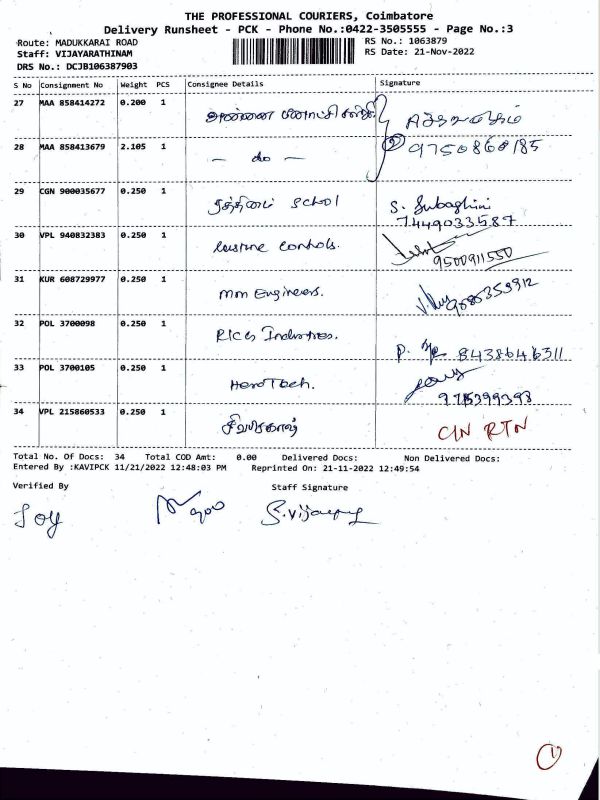 THE PROFESSIONAL COURIERS, Coimbatore
Delivery Runsheet - PCK - Phone No.:0422-3505555 - Page No.:3
Route: MADUKKARAI ROAD RS No.: 1063879
Staff: VIJAYARATHINAM RS Date: 21-Nov-2022
DRS No.: DCJB106387903
S No Consignment No Weight PCS Consignee Details Signature
27 MAA 858414272 0.200 1
28 MAA 858413679 2.105 1 - do - 9750860185
29 CGN 900035677 0.250 1 School S. Subaghini
7449033587
30 VPL 940832383 0.250 1 Controls. 9500911550
31 KUR 608729977 0.250 1 mm Engineers. 9080353912
32 POL 3700098 0.250 1 Rics Industries. 8438646311
33 POL 3700105 0.250 1 Hero Tech.
34 VPL 215860533 0.250 1 CIN RTN
Total No. Of Docs: 34 Total COD Amt: 0.00 Delivered Docs: Non Delivered Docs:
Entered By :KAVIPCK 11/21/2022 12:48:03 PM Reprinted On: 21-11-2022 12:49:54
Verified By Staff Signature
Joy S.vijay
1